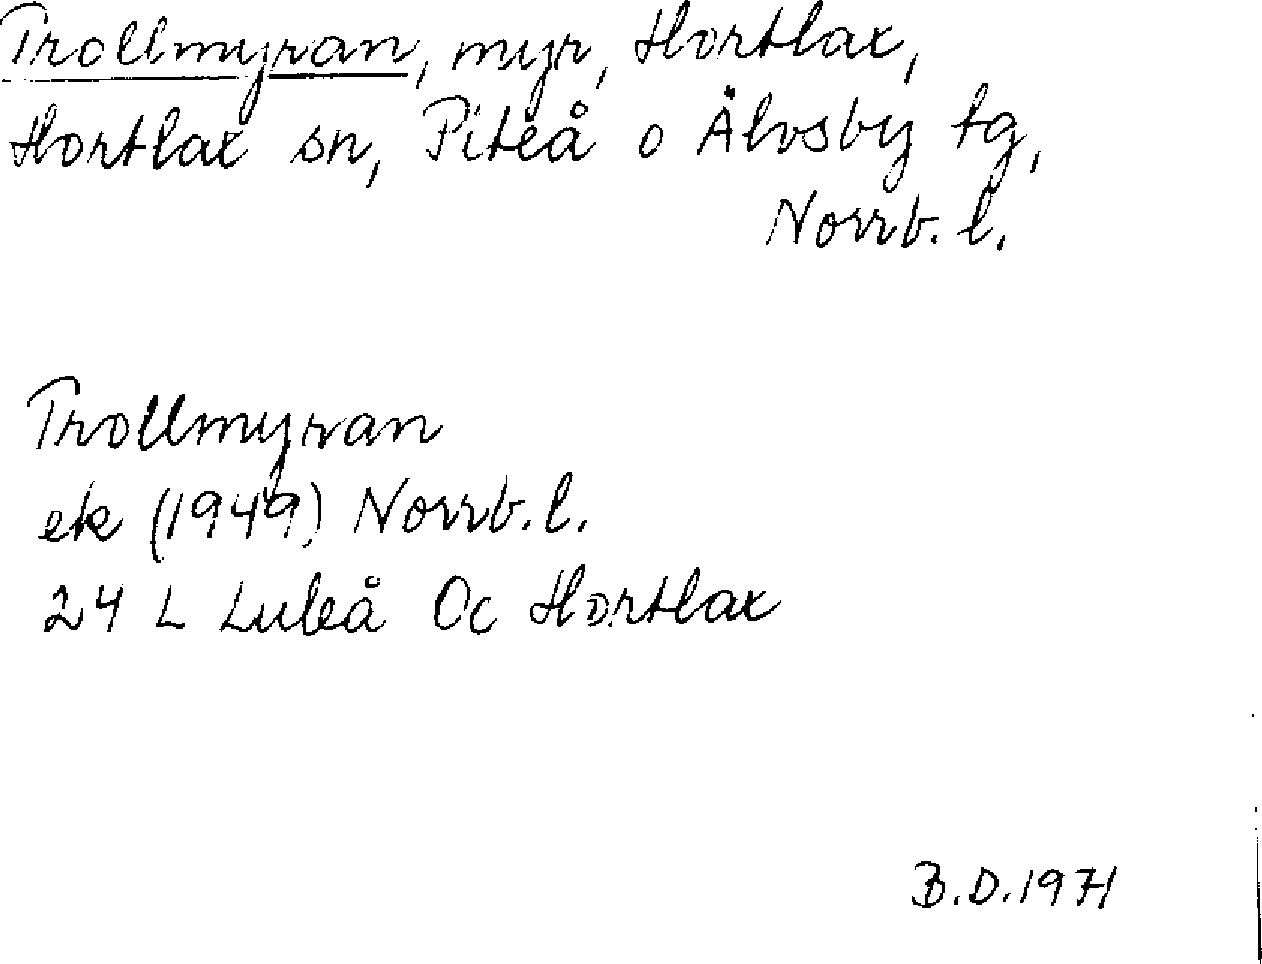 Trollmyran, myr, Hortlax,
Hortlax sn, Piteå o Älvsby tg,
Norrb. l.
Trollmyran
ek (1949) Norrb. l.
24 L Luleå Oc Hortlax
B.D. 1971